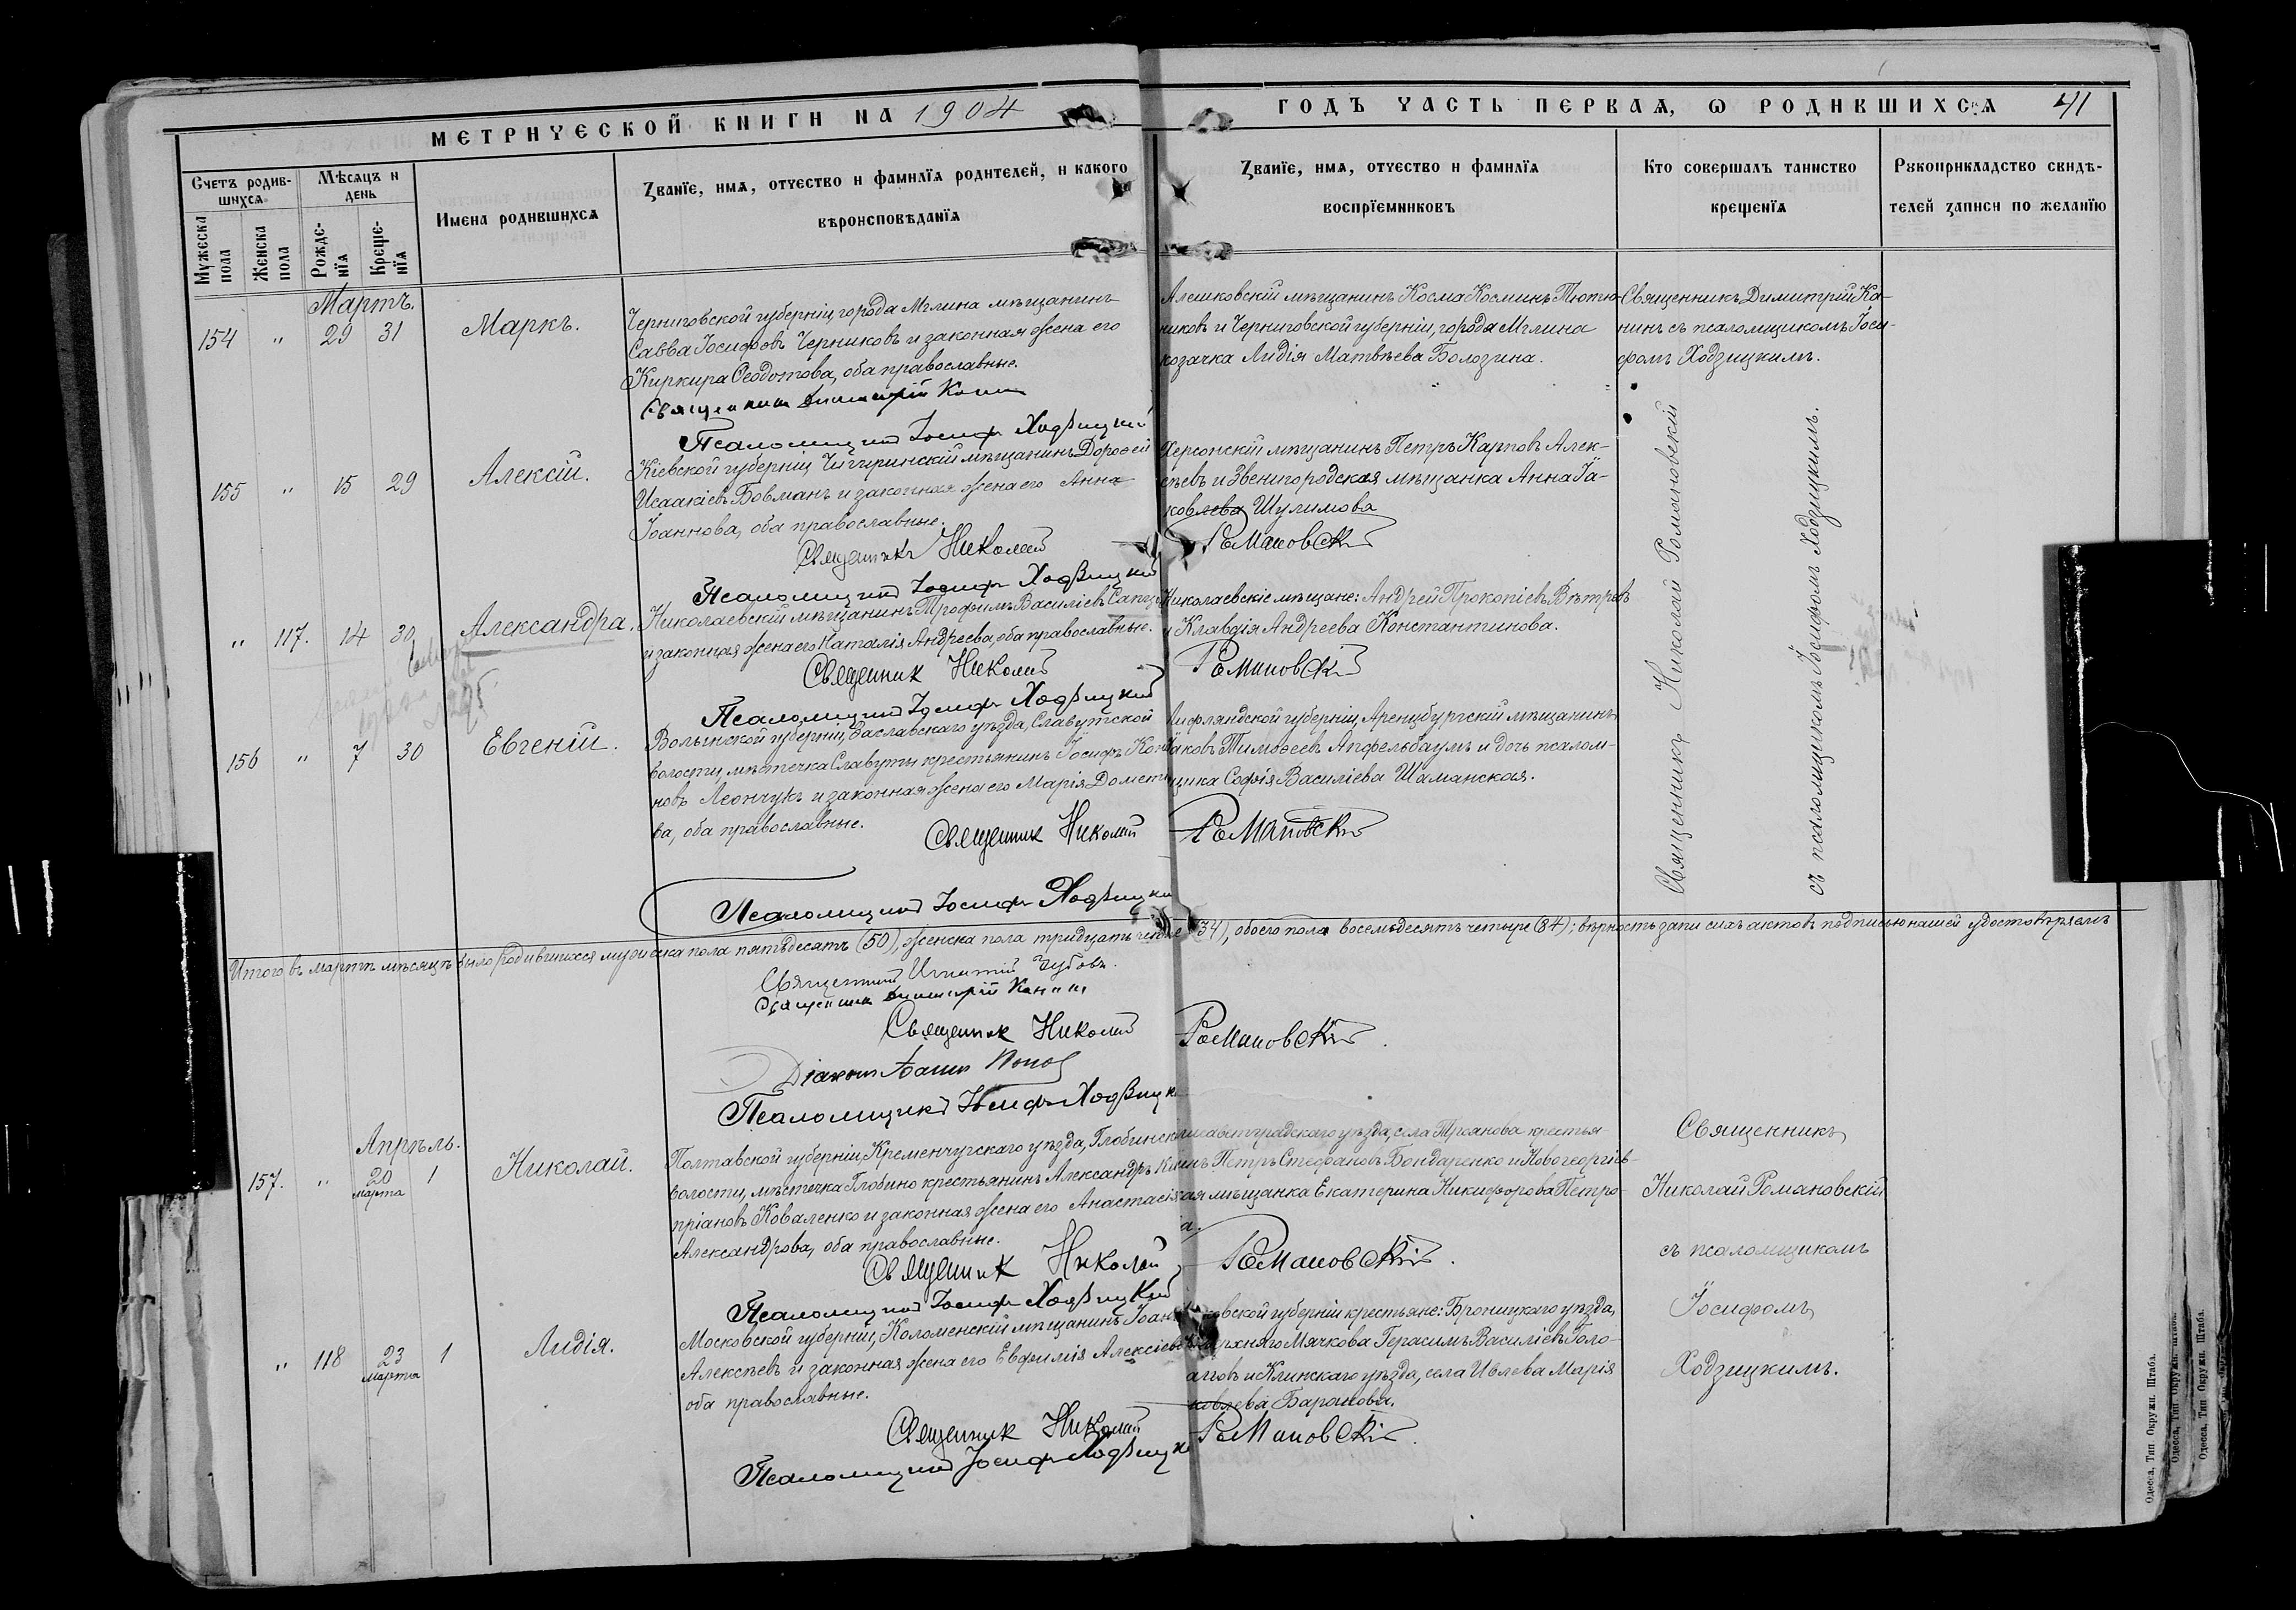 МЕТРИЧЕСКОЙ КНИГИ НА 1904
ГОДЪ ЧАСТЬ ПЕРВАЯ, Ѡ РОДИВШИХСЯ 41
Счетъ родив-
шихся
Мѣсяцъ и
день
Мужеска
пола
Женска
пола
Рожде-
нїя
Креще-
нїя
Имена родившихся
Званїе, имя, отчество и фамилїя родителей, и какого
вѣроисповѣданїя
Званїе, имя, отчество и фамилїя
воспрїемниковъ
Кто совершалъ таинство
крещенїя
Рукоприкладство свидѣ-
телей записи по желанїю
Мартъ.
154 " 29 31
Маркъ.
Черниговской губерніи, города Мглина мѣщанинъ
Савва Іосифовъ Черниковъ и законная жена его
Киркира Ѳеодотова, оба православные.
Священникъ Димитрій Канинъ
Псаломщикъ Іосифъ Ходзицкій
Алешковскій мѣщанинъ Косма Косминъ Тютю-
никовъ и Черниговской губерніи, города Мглина
козачка Лидія Матвѣева Болозина.
Священникъ Димитрій Ка-
нинъ съ псаломщикомъ Іоси-
фомъ Ходзицкимъ.
155 " 15 29
Алексій.
Кіевской губерніи, Чигиринскій мѣщанинъ Дорофей
Исаакіевъ Бовманъ и законная жена его Анна
Іоаннова, оба православные.
Священникъ Николай Романовскій
Псаломщикъ Іосифъ Ходзицкій
Херсонскій мѣщанинъ Петръ Карповъ Алек-
сѣевъ и Звенигородская мѣщанка Анна Іа-
ковлева Шулимова
Священникъ Николай Романовскій
съ псаломщикомъ Іосифомъ Ходзицкимъ.
" 117. 14 30
Александра.
Николаевскій мѣщанинъ Трофимъ Василіевъ
и законная жена его Наталія Андреева, оба православные.
Священник Николай Романовскій
Псаломщикъ Іосифъ Ходзицкій
Николаевскіе мѣщане: Андрей Прокопіевъ Вѣтровъ
и Клавдія Андреева Константинова.
156 " 7 30
Евгеній.
Волынской губерніи, Заславскаго уѣзда, Славутской
волости, мѣстечка Славуты крестьянинъ Іосифъ
новъ Леончукъ и законная жена его Марія Домети
ва, оба православные.
Священник Николай Романовскій
Псаломщикъ Іосифъ Ходзицкій
Лифляндской губерніи, Аренсбургскій мѣщанинъ
Іаковъ Тимоѳеевъ Апфельбаумъ и дочь псалом-
щика Софія Василіева Шаманская.
Итого въ мартѣ мѣсяцѣ было родившихся мужеска пола пятьдесятъ (50), женска пола тридцать четыре (34), обоего пола восемьдесятъ четыре (84); вѣрность записи сихъ актовъ подписью нашей удостовѣряемъ
Священникъ Игнатій Чубовъ.
Священникъ Димитрій Канинъ
Священник Николай Романовскій.
Діаконъ Попов
Псаломщикъ Іосифъ Ходзицкій
Апрѣль.
157. " 20 марта 1
Николай.
Полтавской губерніи, Кременчугскаго уѣзда, Глобинск
волости, мѣстечка Глобино крестьянинъ Александръ Ки
пріановъ Коваленко и законная жена его Анастасія
Александрова, оба православные.
Священник Николай Романовскій.
Псаломщикъ Іосифъ Ходзицкій
лисаветградскаго уѣзда, села Троянова крестья
нинъ Петръ Стефановъ Бондаренко и Новогеоргіев-
ая мѣщанка Екатерина Никифорова Петро-
а.
Священникъ
Николай Романовскій
съ псаломщикомъ
Іосифомъ
Ходзицкимъ.
" 118 23 марта 1
Лидія.
Московской губерніи, Коломенскій мѣщанинъ Іоаннъ
Алексѣевъ и законная жена его Евфимія Алексіева
оба православные.
Священник Николай Романовскій.
Псаломщикъ Іосифъ Ходзицкій
овской губерніи крестьяне: Броницкаго уѣзда,
Верхняго Мячкова Герасимъ Василіевъ Голо-
и Клинскаго уѣзда, села Ивлева Марія
ковлева Баранова.
Одесса, Тип. Окружн. Штаба.
Одесса, Тип. Окружн. Штаба.
Одесса, Тип. Окружн. Штаба.